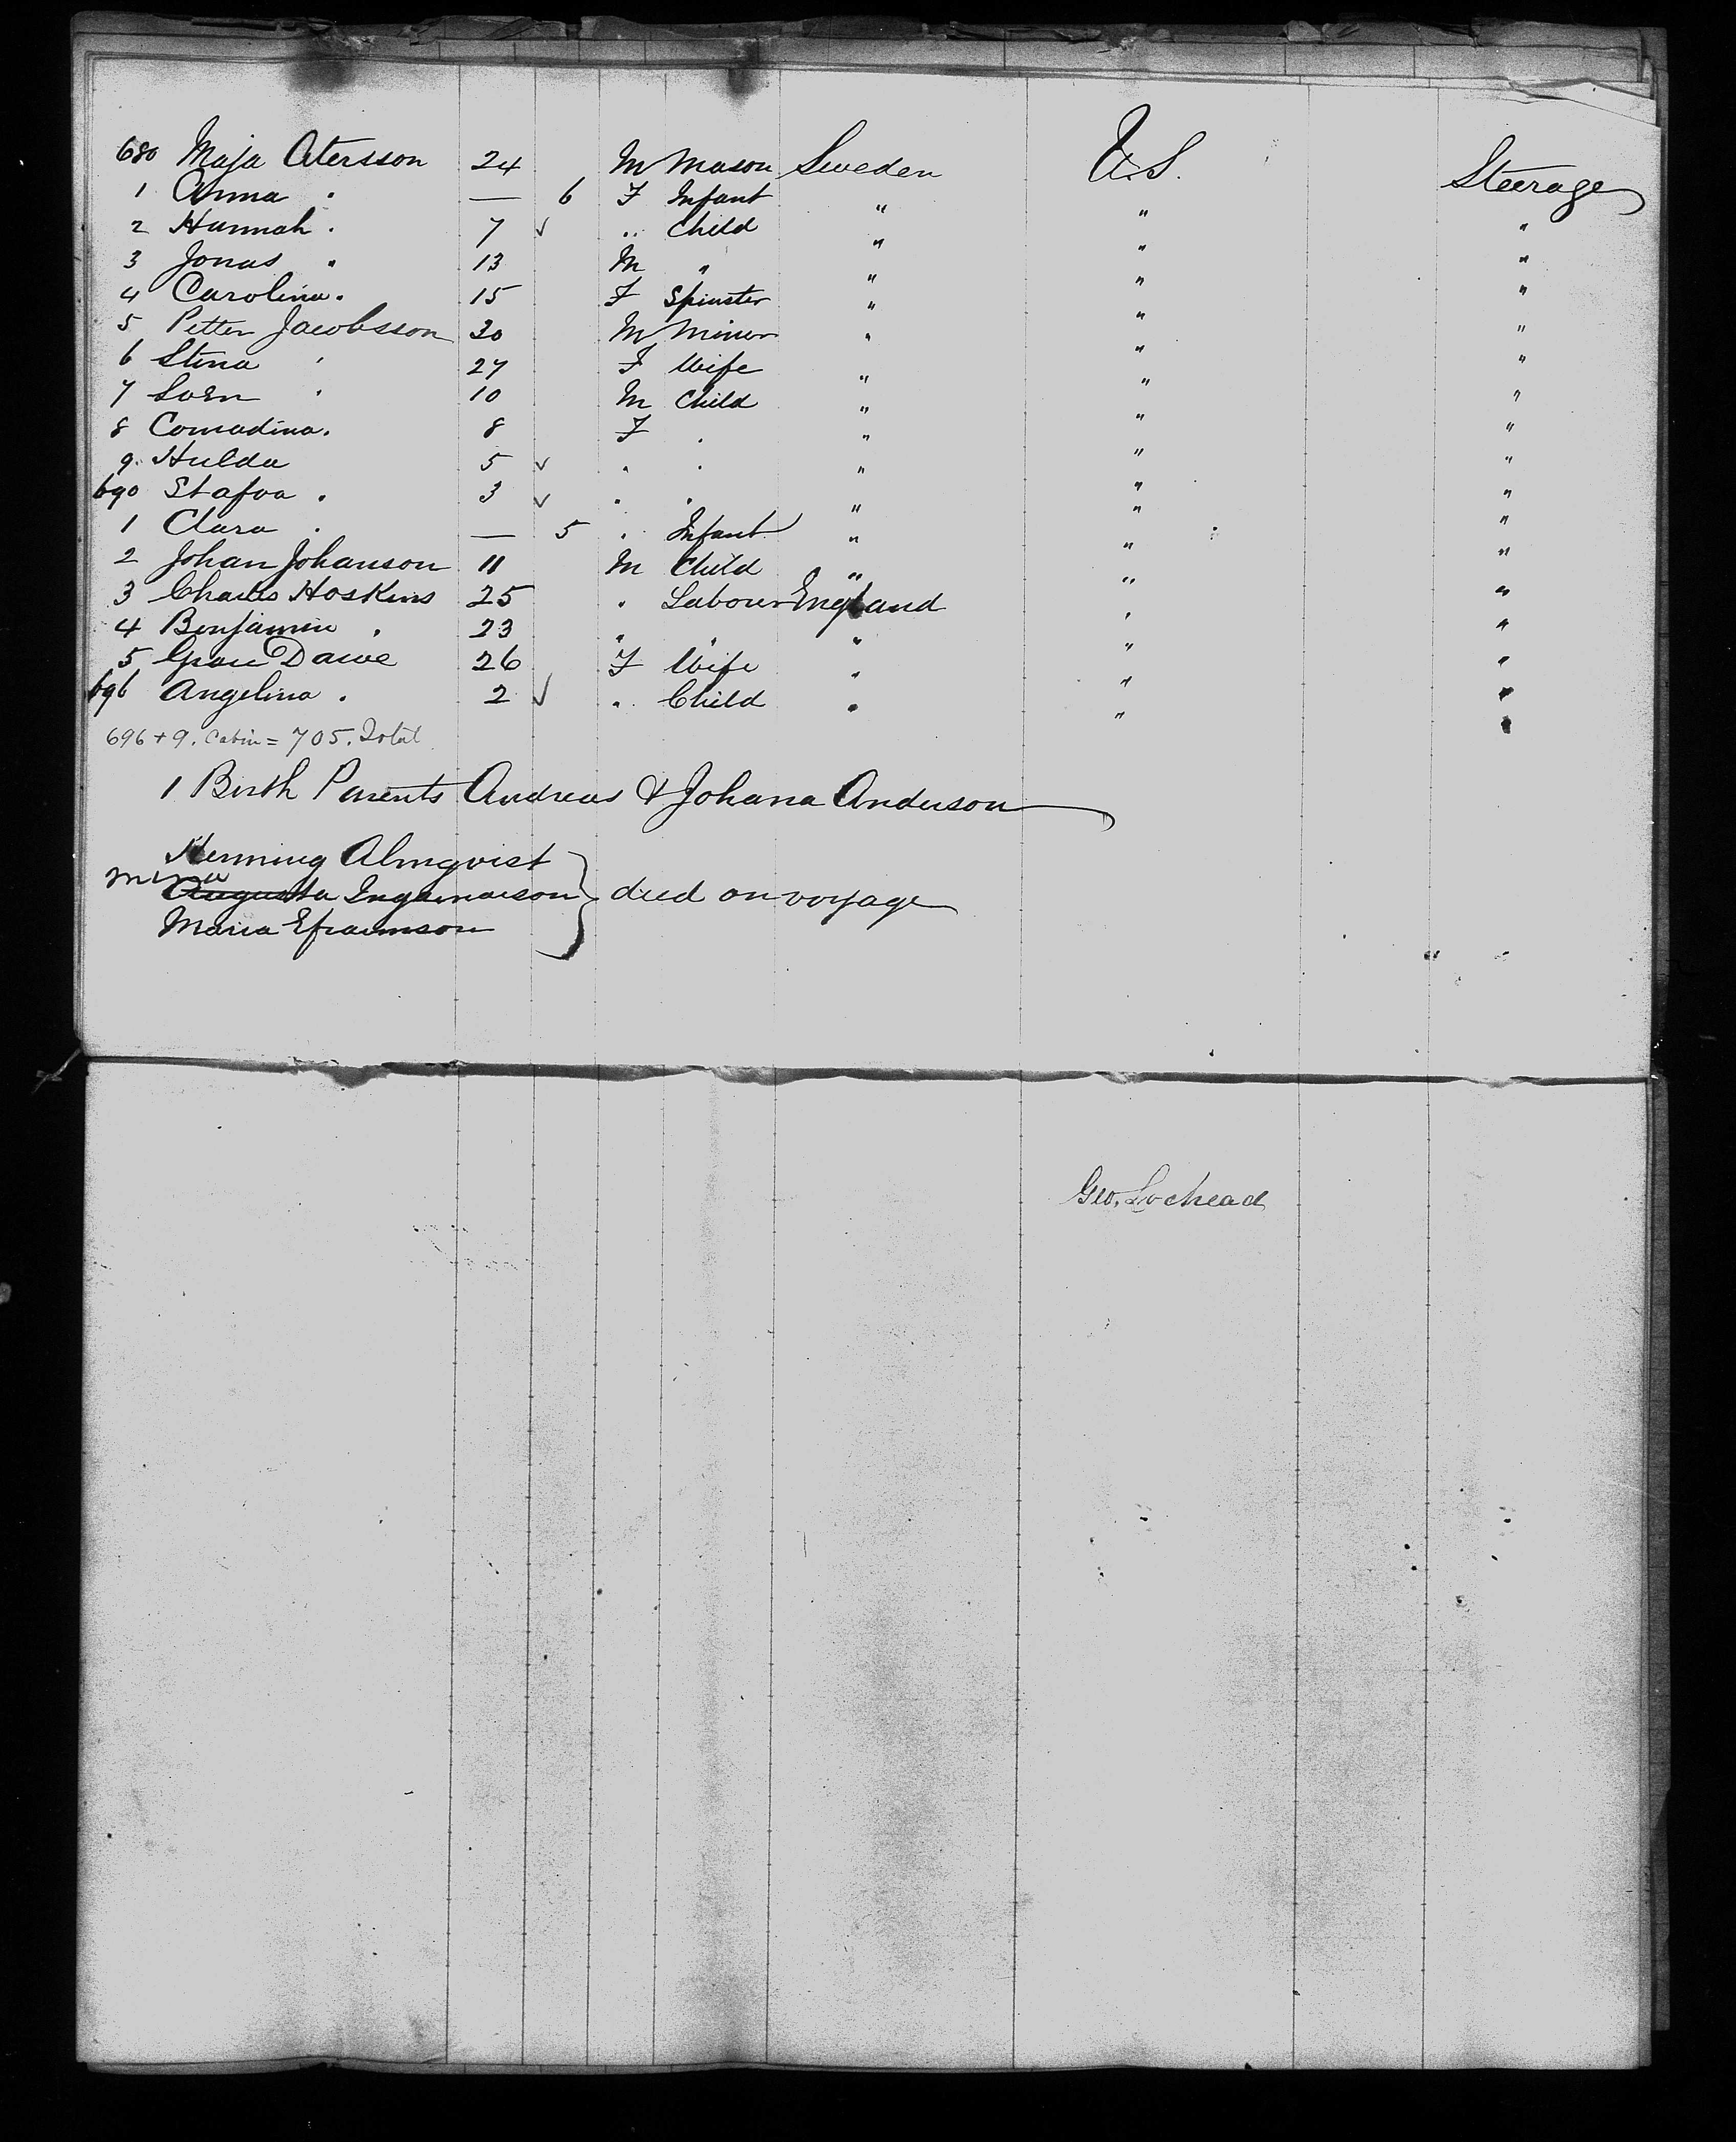 680 Maja Atersson 24 M Mason Sweden U.S. Steerage
1 Anna " — 6 F Infant " " "
2 Hannah " 7 ✓ " Child " " "
3 Jonas " 13 M " " " "
4 Carolina " 15 F Spinster " " "
5 Petter Jacobsson 30 M Miner " " "
6 Stina " 27 F Wife " " "
7 Sven " 10 M Child " " "
8 Comadina " 8 F " " " "
9 Hulda 5 ✓ " " " " "
690 Stafva " 3 ✓ " " " " "
1 Clara " — 5 " Infant " " "
2 Johan Johanson 11 M Child " " "
3 Charles Hoskins 25 " Labour England " "
4 Benjamin " 23 " " " " "
5 Grace Dawe 26 F Wife " " "
696 Angelina " 2 ✓ " Child " " "
696 + 9. Cabin = 705. Total
1 Birth Parents Andreas & Johana Anderson
Henning Almqvist
Mina Augusta Ingemarson } died on voyage
Maria Efraimson
Geo. Lochead